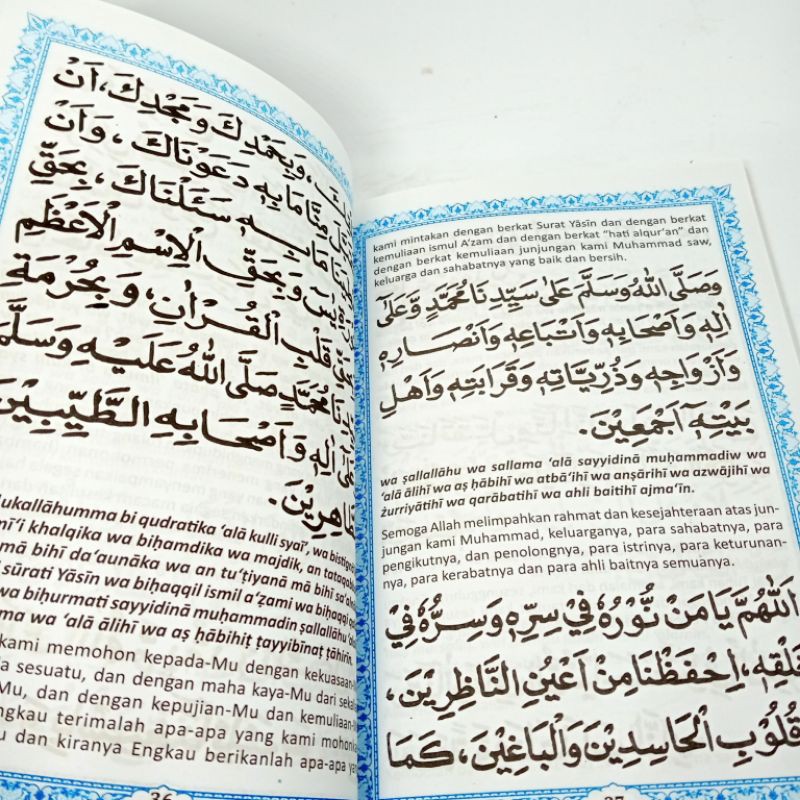 وَبِحَمْدِكَ وَمَجْدِكَ، اَنْ
مِنَّا مَا بِهٖ دَعَوْنَاكَ، وَاَنْ
مَا بِهٖ سَئَلْنَاكَ، بِحَقِّ
يٰسۤ وَبِحَقِّ الْاِسْمِ الْاَعْظَمِ
قَلْبِ الْقُرْاٰنِ، وَبِحُرْمَةِ
مُحَمَّدٍ صَلَّى اللهُ عَلَيْهِ وَسَلَّمَ
اٰلِهٖ وَاَصْحَابِهِ الطَّيِّبِيْنَ
الطَّاهِرِيْنَ.
bi qudratika ‘alā kulli syai’, wa
khalqika wa biḥamdika wa majdik, an
mā bihī da‘aunāka wa an tu‘ṭiyanā mā bihī
sūrati Yāsīn wa biḥaqqil ismil a‘ẓami wa biḥaqqi
wa biḥurmati sayyidinā muḥammadin ṣallallāhu
wa ‘alā ālihī wa aṣ ḥābihiṭ ṭayyibīnaṭ ṭāhirīn.
kami memohon kepada-Mu dengan kekuasaan
sesuatu, dan dengan maha kaya-Mu dari
Mu, dan dengan kepujian-Mu dan kemuliaan
terimalah apa-apa yang kami
dan kiranya Engkau berikanlah apa-apa
36
kami mintakan dengan berkat Surat Yāsīn dan dengan berkat
kemuliaan ismul A‘zam dan dengan berkat “hati alqur’an” dan
dengan berkat kemuliaan junjungan kami Muhammad saw,
keluarga dan sahabatnya yang baik dan bersih.
وَصَلَّى اللهُ وَسَلَّمَ عَلٰى سَيِّدِنَا مُحَمَّدٍ وَّعَلٰى
اٰلِهٖ وَاَصْحَابِهٖ وَاَتْبَاعِهٖ وَاَنْصَارِهٖ
وَاَزْوَاجِهٖ وَذُرِّيَّاتِهٖ وَقَرَابَتِهٖ وَاَهْلِ
بَيْتِهٖ اَجْمَعِيْنَ.
wa ṣallallāhu wa sallama ‘alā sayyidinā muḥammadiw wa
‘alā ālihī wa aṣ ḥābihī wa atbā‘ihī wa anṣārihī wa azwājihī wa
żurriyātihī wa qarābatihī wa ahli baitihī ajma‘īn.
Semoga Allah melimpahkan rahmat dan kesejahteraan atas jun-
jungan kami Muhammad, keluarganya, para sahabatnya, para
pengikutnya, dan penolongnya, para istrinya, para keturunan-
nya, para kerabatnya dan para ahli baitnya semuanya.
اَللّٰهُمَّ يَا مَنْ نُّوْرُهٗ فِيْ سِرِّهٖ وَسِرُّهٗ فِيْ
خَلْقِهٖ، اِحْفَظْنَا مِنْ اَعْيُنِ النَّاظِرِيْنَ،
قُلُوْبِ الْحَاسِدِيْنَ وَالْبَاغِيْنَ، كَمَا